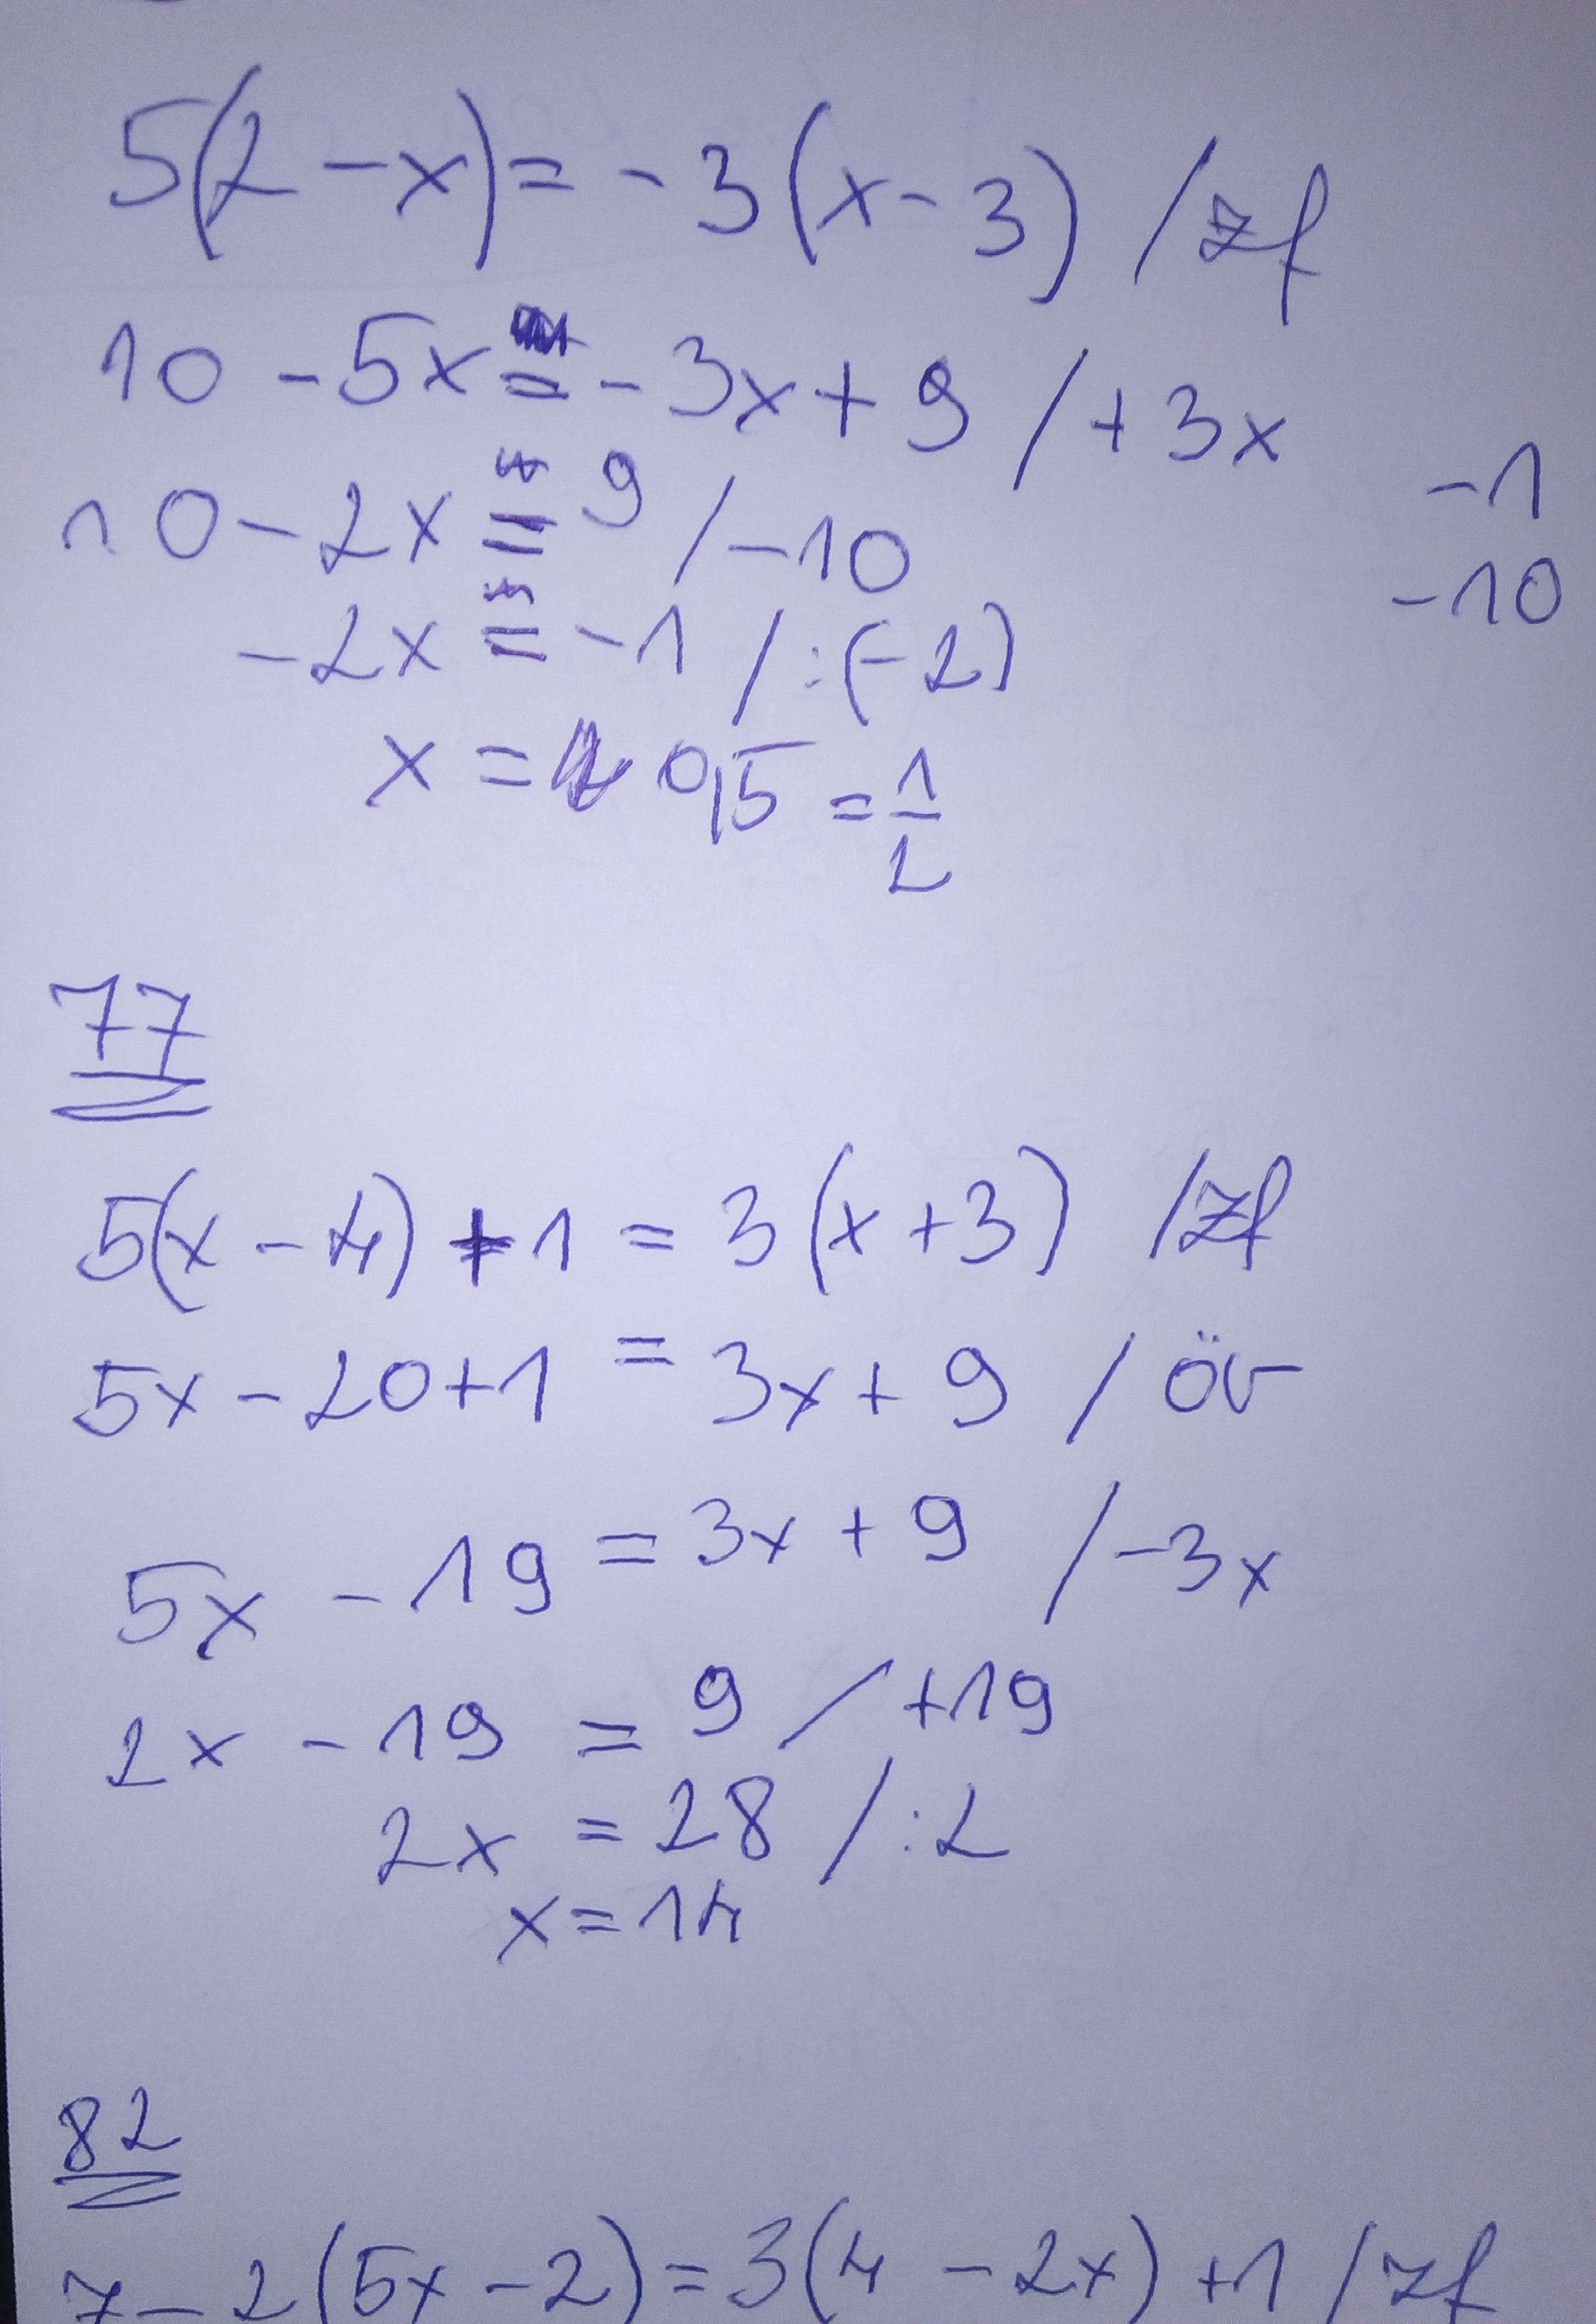 5(2-x)=-3(x-3) /zf
10-5x=-3x+9 /+3x
10-2x=9 /-10
-1
-10
-2x=-1 /:(-2)
x=0,5=1/2
77
5(x-4)+1=3(x+3) /zf
5x-20+1=3x+9 /öv
5x-19=3x+9 /-3x
2x-19=9 /+19
2x=28 /:2
x=14
82
7-2(5x-2)=3(4-2x)+1 /zf